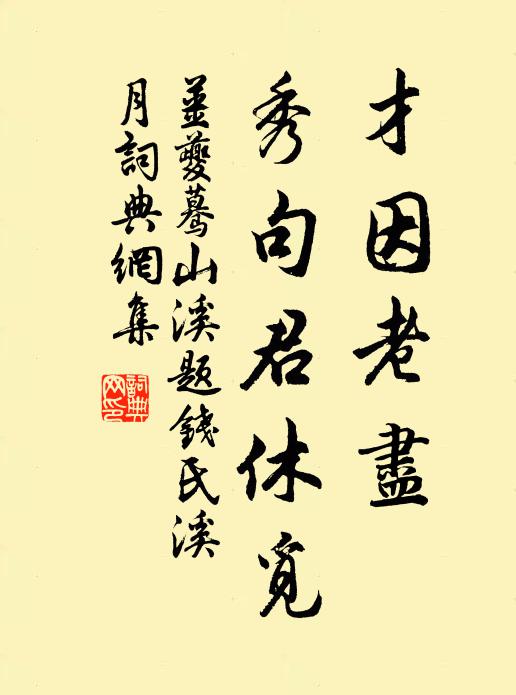 才因老盡
秀句君休覓
姜夔驀山溪題錢氏溪
月詞典網集
詞典網印